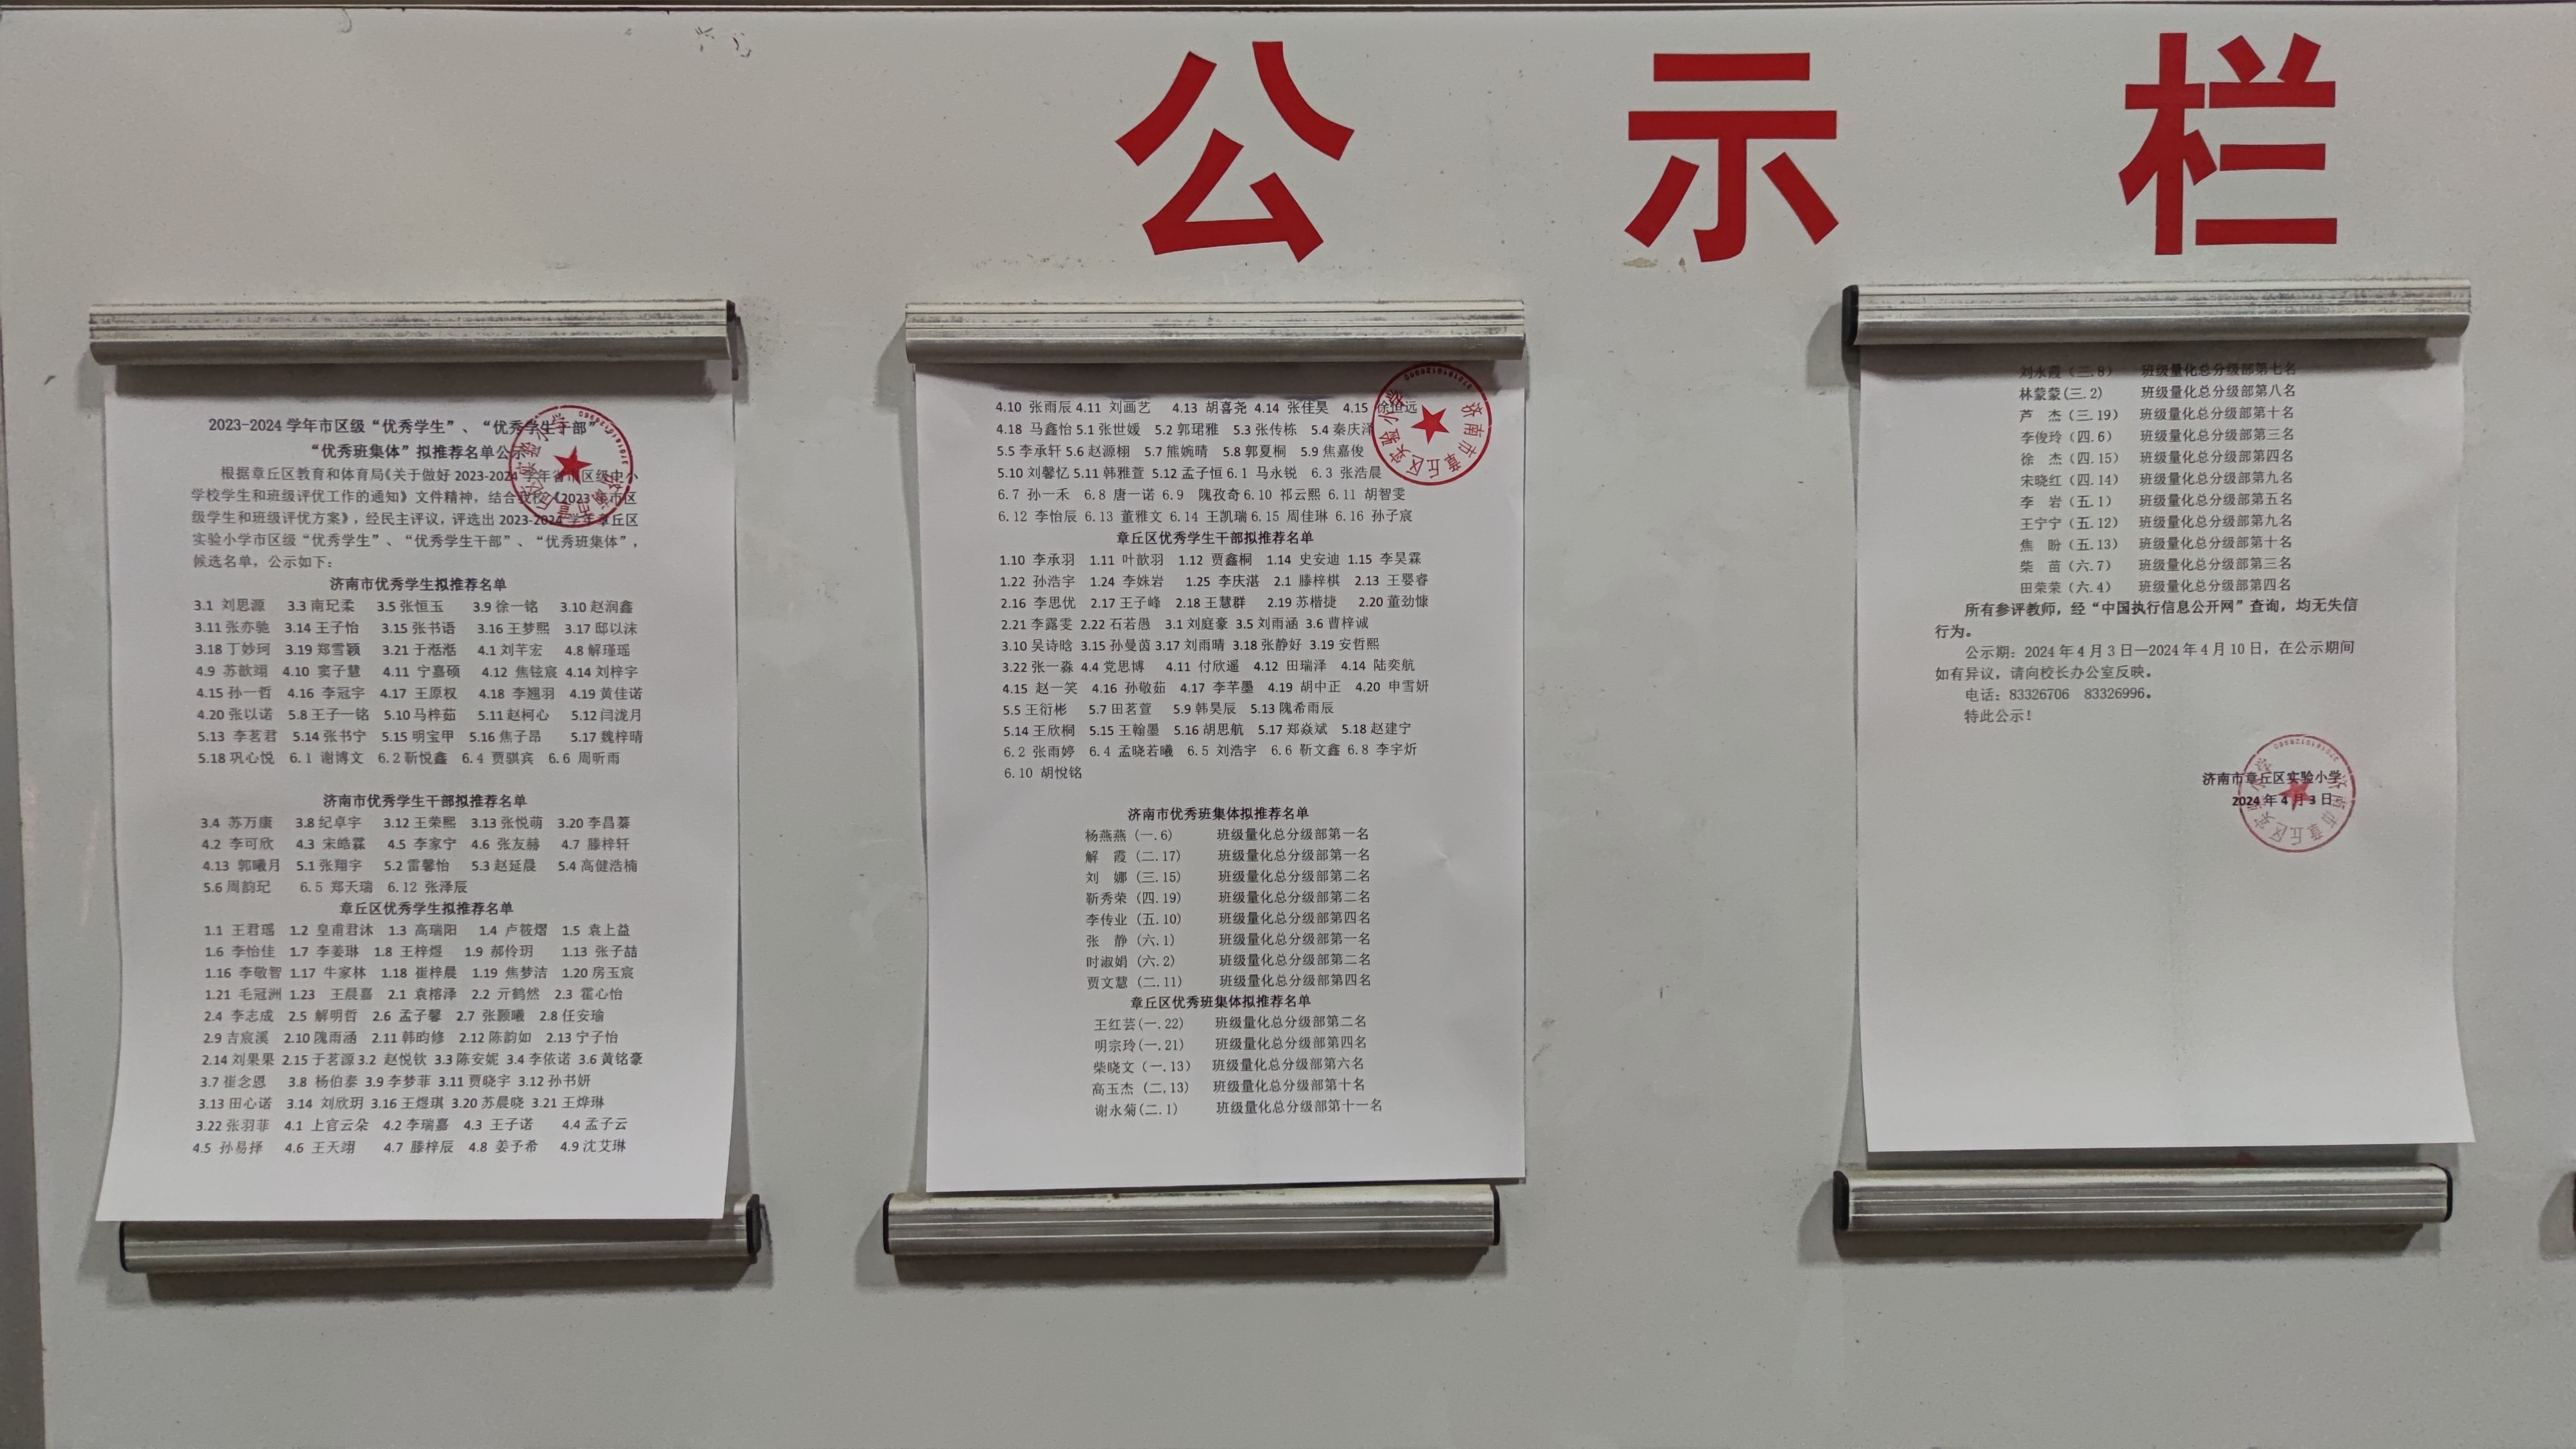 公示栏
2023-2024学年市区级“优秀学生”、“优秀学生干部”
“优秀班集体”拟推荐名单公示
根据章丘区教育和体育局《关于做好2023-2024学年省市区级中小
学校学生和班级评优工作的通知》文件精神，结合我校《2023 市区
级学生和班级评优方案》，经民主评议，评选出2023-2024学年章丘区
实验小学市区级“优秀学生”、“优秀学生干部”、“优秀班集体”，
候选名单，公示如下：
济南市优秀学生拟推荐名单
3.1 刘思源 3.3 南玘柔 3.5 张恒玉 3.9 徐一铭 3.10 赵润鑫
3.11 张亦驰 3.14 王子怡 3.15 张书语 3.16 王梦熙 3.17 邸以沫
3.18 丁妙珂 3.19 郑雪颖 3.21 于湉湉 4.1 刘芊宏 4.8 解瑾瑶
4.9 苏歆翊 4.10 窦子慧 4.11 宁嘉硕 4.12 焦铉宸 4.14 刘梓宇
4.15 孙一哲 4.16 李冠宇 4.17 王原权 4.18 李翘羽 4.19 黄佳诺
4.20 张以诺 5.8 王子一铭 5.10 马梓茹 5.11 赵柯心 5.12 闫泷月
5.13 李茗君 5.14 张书宁 5.15 明宝甲 5.16 焦子昂 5.17 魏梓晴
5.18 巩心悦 6.1 谢博文 6.2 靳悦鑫 6.4 贾骐宾 6.6 周昕雨
济南市优秀学生干部拟推荐名单
3.4 苏万康 3.8 纪卓宇 3.12 王荣熙 3.13 张悦萌 3.20 李昌蓁
4.2 李可欣 4.3 宋皓霖 4.5 李家宁 4.6 张友赫 4.7 滕梓轩
4.13 郭曦月 5.1 张翔宇 5.2 雷馨怡 5.3 赵延晨 5.4 高健浩楠
5.6 周韵玘 6.5 郑天瑞 6.12 张泽辰
章丘区优秀学生拟推荐名单
1.1 王君瑶 1.2 皇甫君沐 1.3 高瑞阳 1.4 卢筱熠 1.5 袁上益
1.6 李怡佳 1.7 李姜琳 1.8 王梓煜 1.9 郝伶玥 1.13 张子喆
1.16 李敬智 1.17 牛家林 1.18 崔梓晨 1.19 焦梦洁 1.20 房玉宸
1.21 毛冠洲 1.23 王晨嘉 2.1 袁榕泽 2.2 亓鹤然 2.3 霍心怡
2.4 李志成 2.5 解明哲 2.6 孟子馨 2.7 张颢曦 2.8 任安瑜
2.9 吉宸溪 2.10 隗雨涵 2.11 韩昀修 2.12 陈韵如 2.13 宁子怡
2.14 刘果果 2.15 于茗源 3.2 赵悦钦 3.3 陈安妮 3.4 李依诺 3.6 黄铭豪
3.7 崔念恩 3.8 杨伯泰 3.9 李梦菲 3.11 贾晓宇 3.12 孙书妍
3.13 田心诺 3.14 刘欣玥 3.16 王煜琪 3.20 苏晨晓 3.21 王烨琳
3.22 张羽菲 4.1 上官云朵 4.2 李瑞嘉 4.3 王子诺 4.4 孟子云
4.5 孙易择 4.6 王天翊 4.7 滕梓辰 4.8 姜予希 4.9 沈艾琳
4.10 张雨辰 4.11 刘画艺 4.13 胡喜尧 4.14 张佳昊 4.15 徐恒远
4.18 马鑫怡 5.1 张世媛 5.2 郭珺雅 5.3 张传栋 5.4 秦庆泽
5.5 李承轩 5.6 赵源栩 5.7 熊婉晴 5.8 郭夏桐 5.9 焦嘉俊
5.10 刘馨忆 5.11 韩雅萱 5.12 孟子恒 6.1 马永锐 6.3 张浩晨
6.7 孙一禾 6.8 唐一诺 6.9 隗孜奇 6.10 祁云熙 6.11 胡智雯
6.12 李怡辰 6.13 董雅文 6.14 王凯瑞 6.15 周佳琳 6.16 孙子宸
章丘区优秀学生干部拟推荐名单
1.10 李承羽 1.11 叶歆羽 1.12 贾鑫桐 1.14 史安迪 1.15 李昊霖
1.22 孙浩宇 1.24 李姝岩 1.25 李庆湛 2.1 滕梓棋 2.13 王婴睿
2.16 李思优 2.17 王子峰 2.18 王慧群 2.19 苏楷捷 2.20 董劲慷
2.21 李露雯 2.22 石若愚 3.1 刘庭豪 3.5 刘雨涵 3.6 曹梓诚
3.10 吴诗晗 3.15 孙曼茵 3.17 刘雨晴 3.18 张静好 3.19 安哲熙
3.22 张一淼 4.4 党思博 4.11 付欣遥 4.12 田瑞泽 4.14 陆奕航
4.15 赵一笑 4.16 孙敬茹 4.17 李芊墨 4.19 胡中正 4.20 申雪妍
5.5 王衍彬 5.7 田茗萱 5.9 韩昊辰 5.13 隗希雨辰
5.14 王欣桐 5.15 王翰墨 5.16 胡思航 5.17 郑焱斌 5.18 赵建宁
6.2 张雨婷 6.4 孟晓若曦 6.5 刘浩宇 6.6 靳文鑫 6.8 李宇炘
6.10 胡悦铭
济南市优秀班集体拟推荐名单
杨燕燕（一.6） 班级量化总分级部第一名
解 霞（二.17） 班级量化总分级部第一名
刘 娜（三.15） 班级量化总分级部第二名
靳秀荣（四.19） 班级量化总分级部第二名
李传业（五.10） 班级量化总分级部第四名
张 静（六.1） 班级量化总分级部第一名
时淑娟（六.2） 班级量化总分级部第二名
贾文慧（二.11） 班级量化总分级部第四名
章丘区优秀班集体拟推荐名单
王红芸(一.22) 班级量化总分级部第二名
明宗玲(一.21) 班级量化总分级部第四名
柴晓文（一.13） 班级量化总分级部第六名
高玉杰（二.13） 班级量化总分级部第十名
谢永菊(二.1) 班级量化总分级部第十一名
刘永霞（三.8） 班级量化总分级部第七名
林蒙蒙(三.2) 班级量化总分级部第八名
芦 杰（三.19） 班级量化总分级部第十名
李俊玲（四.6） 班级量化总分级部第三名
徐 杰（四.15） 班级量化总分级部第四名
宋晓红（四.14） 班级量化总分级部第九名
李 岩（五.1） 班级量化总分级部第五名
王宁宁（五.12） 班级量化总分级部第九名
焦 盼（五.13） 班级量化总分级部第十名
柴 苗（六.7） 班级量化总分级部第三名
田荣荣（六.4） 班级量化总分级部第四名
所有参评教师，经“中国执行信息公开网”查询，均无失信
行为。
公示期：2024年4月3日—2024年4月10日，在公示期间
如有异议，请向校长办公室反映。
电话：83326706 83326996。
特此公示！
济南市章丘区实验小学
2024年4月3日